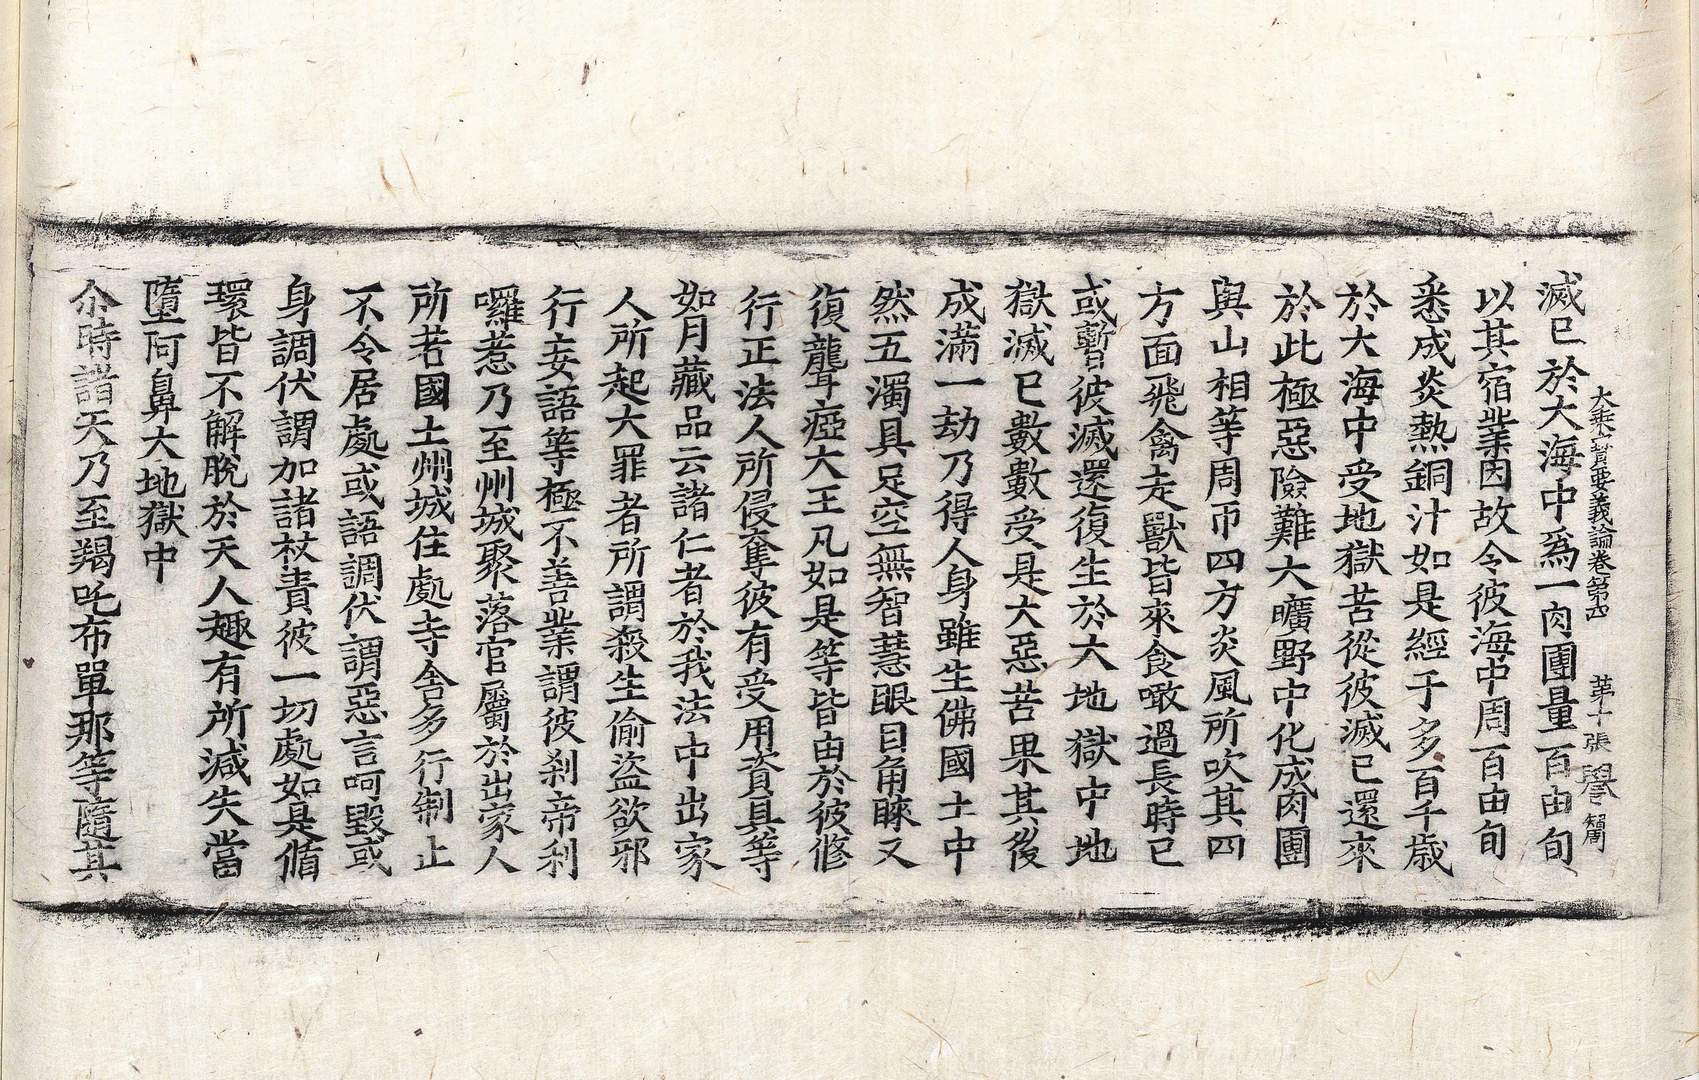 大乘寶要義論卷第四 第十張 學
滅已於大海中爲一肉團量百由旬
以其宿業因故令彼海中周百由旬
悉成炎熱銅汁如是經于多百千歲
於大海中受地獄苦從彼滅已還來
於此極惡險難大曠野中化成肉團
與山相等周帀四方炎風所吹其四
方面飛禽走獸皆來食噉過長時已
或暫彼滅還復生於大地獄中地
獄滅已數數受是大惡苦果其後
成滿一劫乃得人身雖生佛國土中
然五濁具足空無智慧眼目角睞又
復聾瘂大王凡如是等皆由於彼修
行正法人所侵奪彼有受用資具等
如月藏品云諸仁者於我法中出家
人所起大罪者所謂殺生偷盜欲邪
行妄語等極不善業謂彼刹帝利
囉惹乃至州城聚落官屬於出家人
所若國土州城住處寺舍多行制止
不令居處或語調伏謂惡言呵毀或
身調伏謂加諸杖責彼一切處如是循
環皆不解脫於天人趣有所減失當
墮阿鼻大地獄中
尒時諸天乃至羯吒布單那等隨其